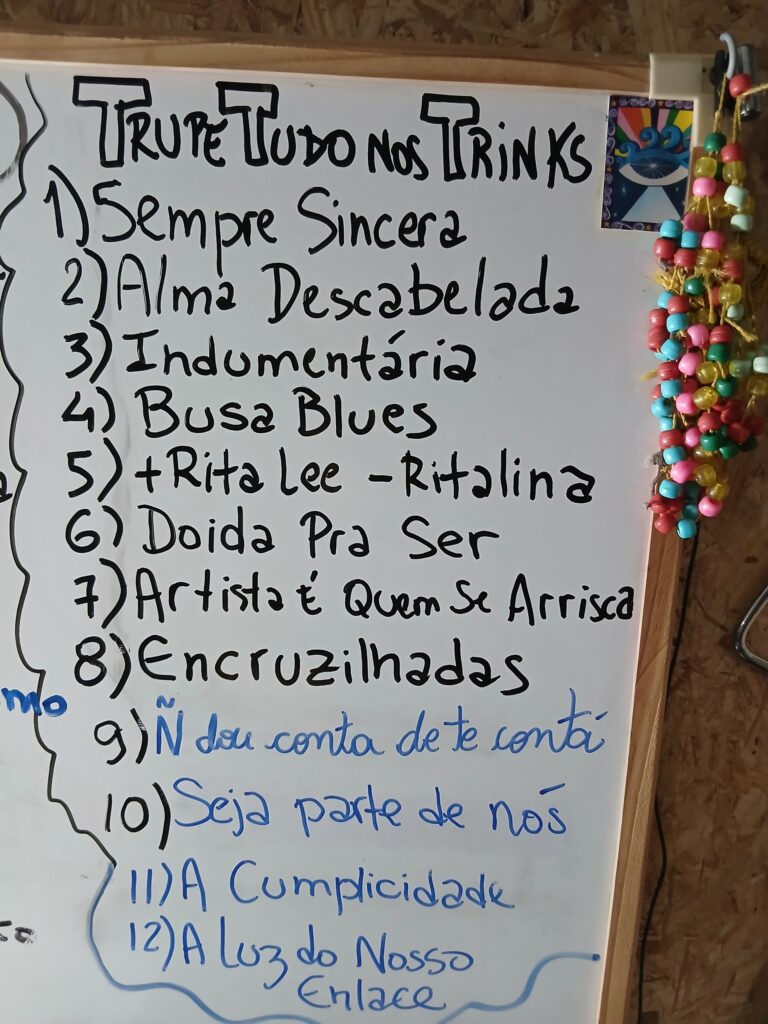 TRUPE TUDO NOS TRINKS
1) Sempre Sincera
2) Alma Descabelada
3) Indumentária
4) Busa Blues
5) + Rita Lee - Ritalina
6) Doida Pra Ser
7) Artista É Quem Se Arrisca
8) Encruzilhadas
9) Ñ dou conta de te contá
10) Seja parte de nós
11) A Cumplicidade
12) A Luz do Nosso
Enlace
mo